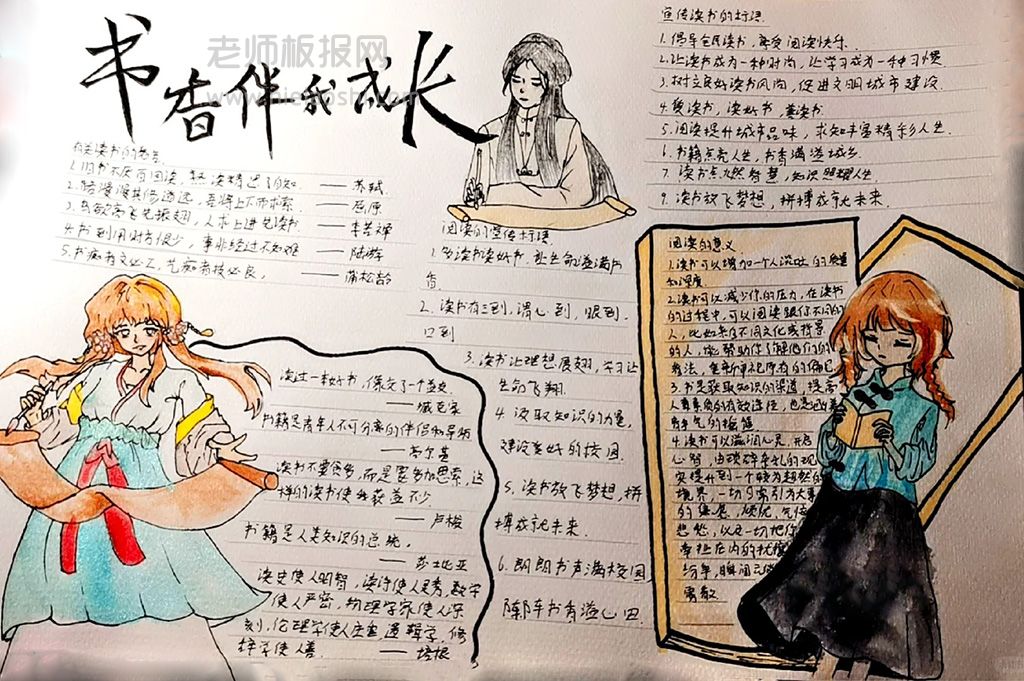 老师板报网
书香伴我成长
有关读书的名言
1.旧书不厌百回读,熟读精思子自知 ——苏轼
2.路漫漫其修远兮,吾将上下而求索 ——屈原
3.鸟欲高飞先振翅,人求上进先读书 ——李苦禅
4.书到用时方恨少,事非经过不知难 ——陆游
5.书痴者文必工,艺痴者技必良。 ——蒲松龄
阅读的宣传标语
1.多读书读好书,让生命溢满书
香
2.读书有三到,谓心到,眼到,
口到
3.读书让理想展翅,学习让
生命飞翔
4.汲取知识的力量,
建设美好的校园
5.读书放飞梦想,拼
搏成就未来
6.朗朗书声满校园
阵阵书香溢心田
宣传读书的标语
1.倡导全民读书,享受阅读快乐.
2.让读书成为一种时尚,让学习成为一种习惯
3.树立良好读书风尚,促进文明城市建设.
4.爱读书,读好书,善读书.
5.阅读提升城市品味,求知丰富精彩人生.
6.书籍点亮人生,书香满溢城乡.
7.读书点燃智慧,知识照耀人生.
9.读书放飞梦想,拼搏成就未来.
读过一本好书,像交了个益友
——臧克家
书籍是青年人不可分离的伴侣和导师
——高尔基
读书不要贪多,而是要多加思索,这
样的读书使我获益不少
——卢梭
书籍是人类知识的总统。
——莎士比亚
读史使人明智,读诗使人灵秀,数学
使人严密,物理学家使人深
刻,伦理学使人庄重,逻辑学、修
辞学使人善 ——培根
阅读的意义
1.读书可以增加一个人谈吐的质量
和深度
2.读书可以减少你的压力,在读书
的过程中,可以阅读跟你不同的
人,比如来自不同文化或背景
的人,能帮助你了解他们的
看法,重新审视原有的偏见
3.书是获取知识的渠道,提高
人素质的有效途径,也是
4.读书可以滋润心灵,开启
心智,由琐碎杂乱的现
实提升到一个较为超然的
境界,一切日常引为大事
的焦虑,烦忧,气恼
悲愁,以及一切把你
牵扯在内的扰攘
纷争,瞬间云